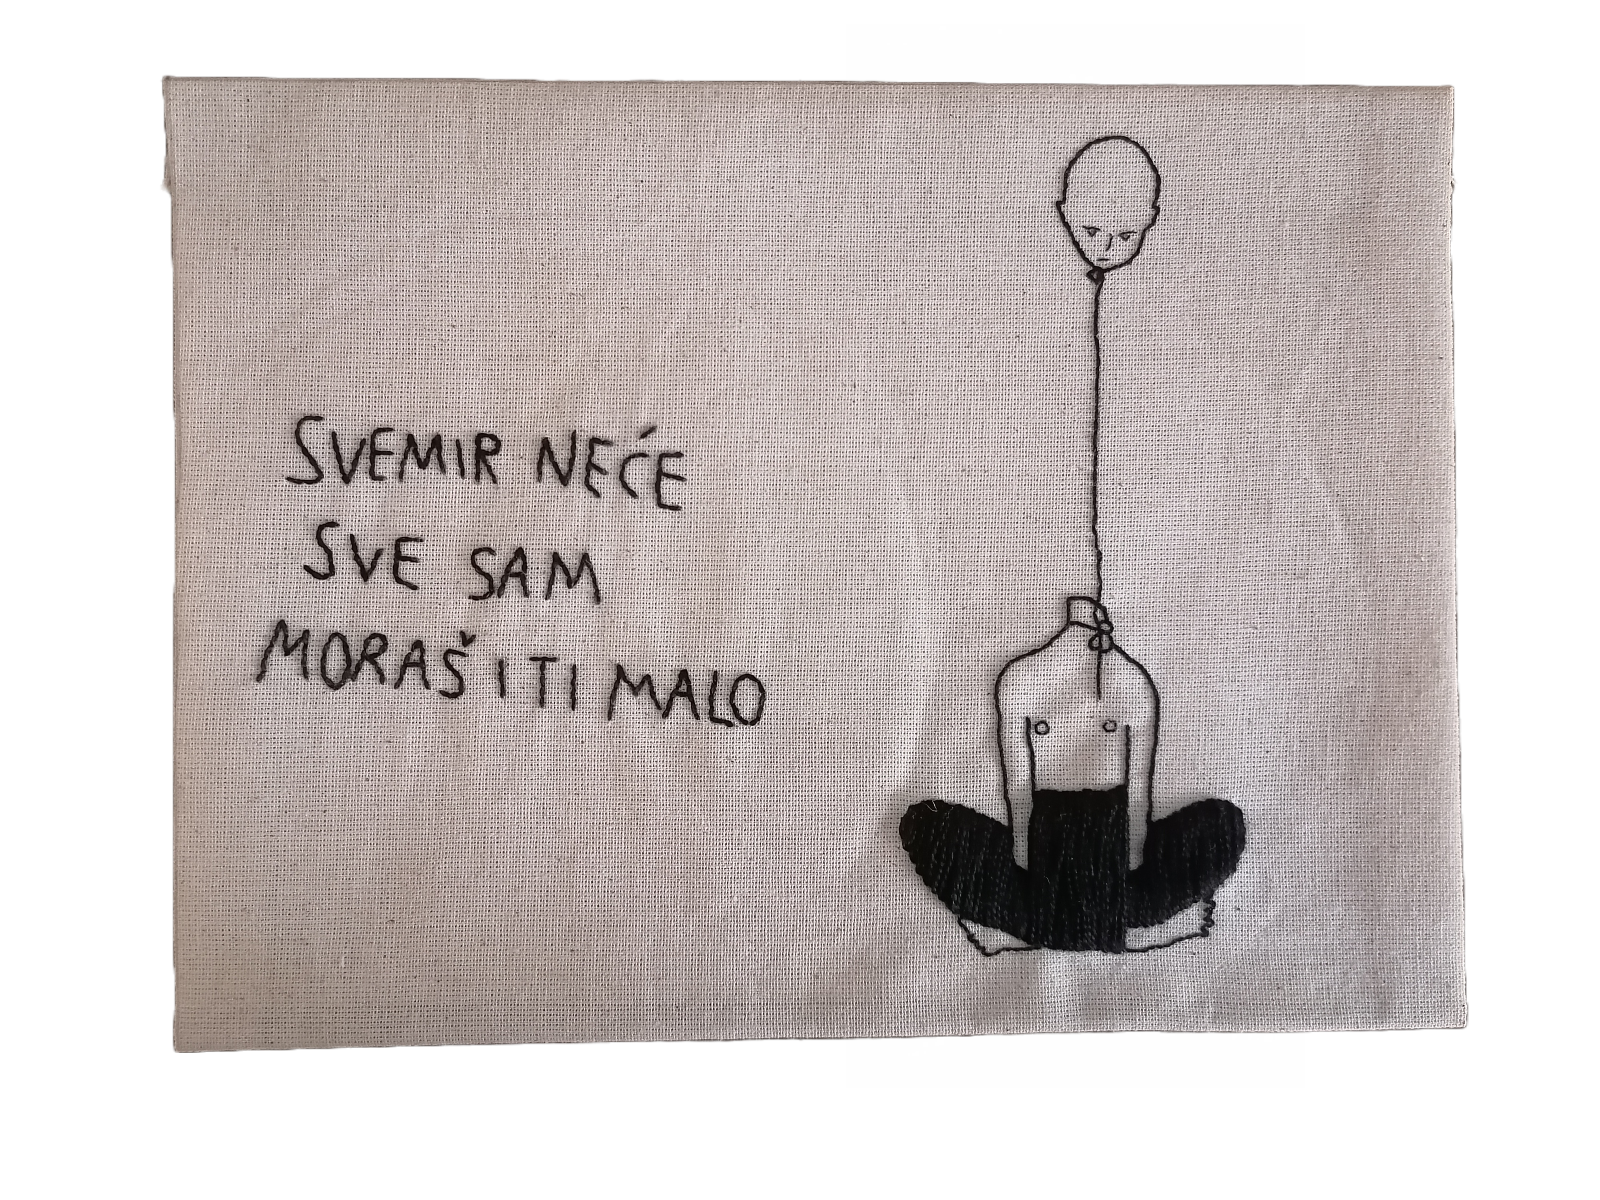 SVEMIR NEĆE
SVE SAM
MORAŠ I TI MALO